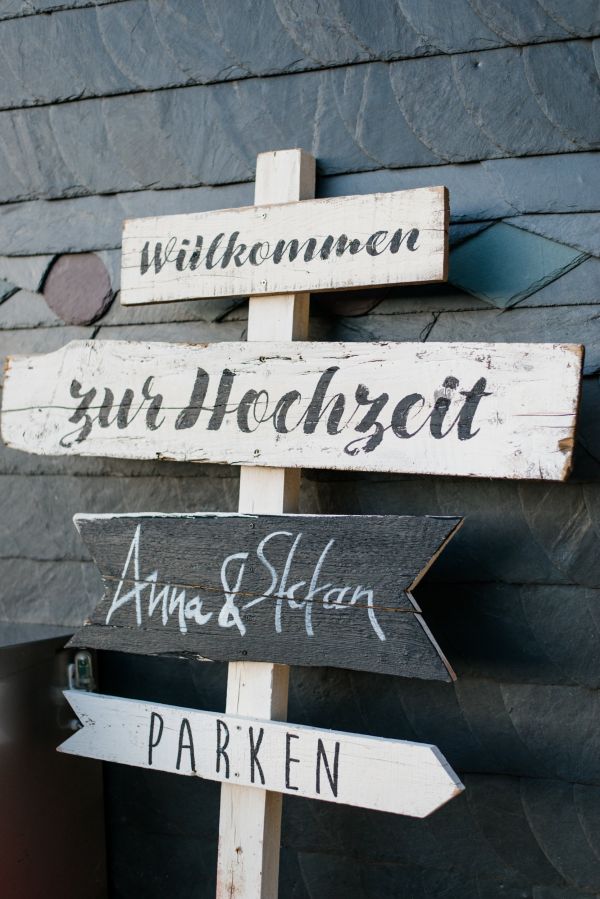 Willkommen
zur Hochzeit
Anna & Stefan
PARKEN